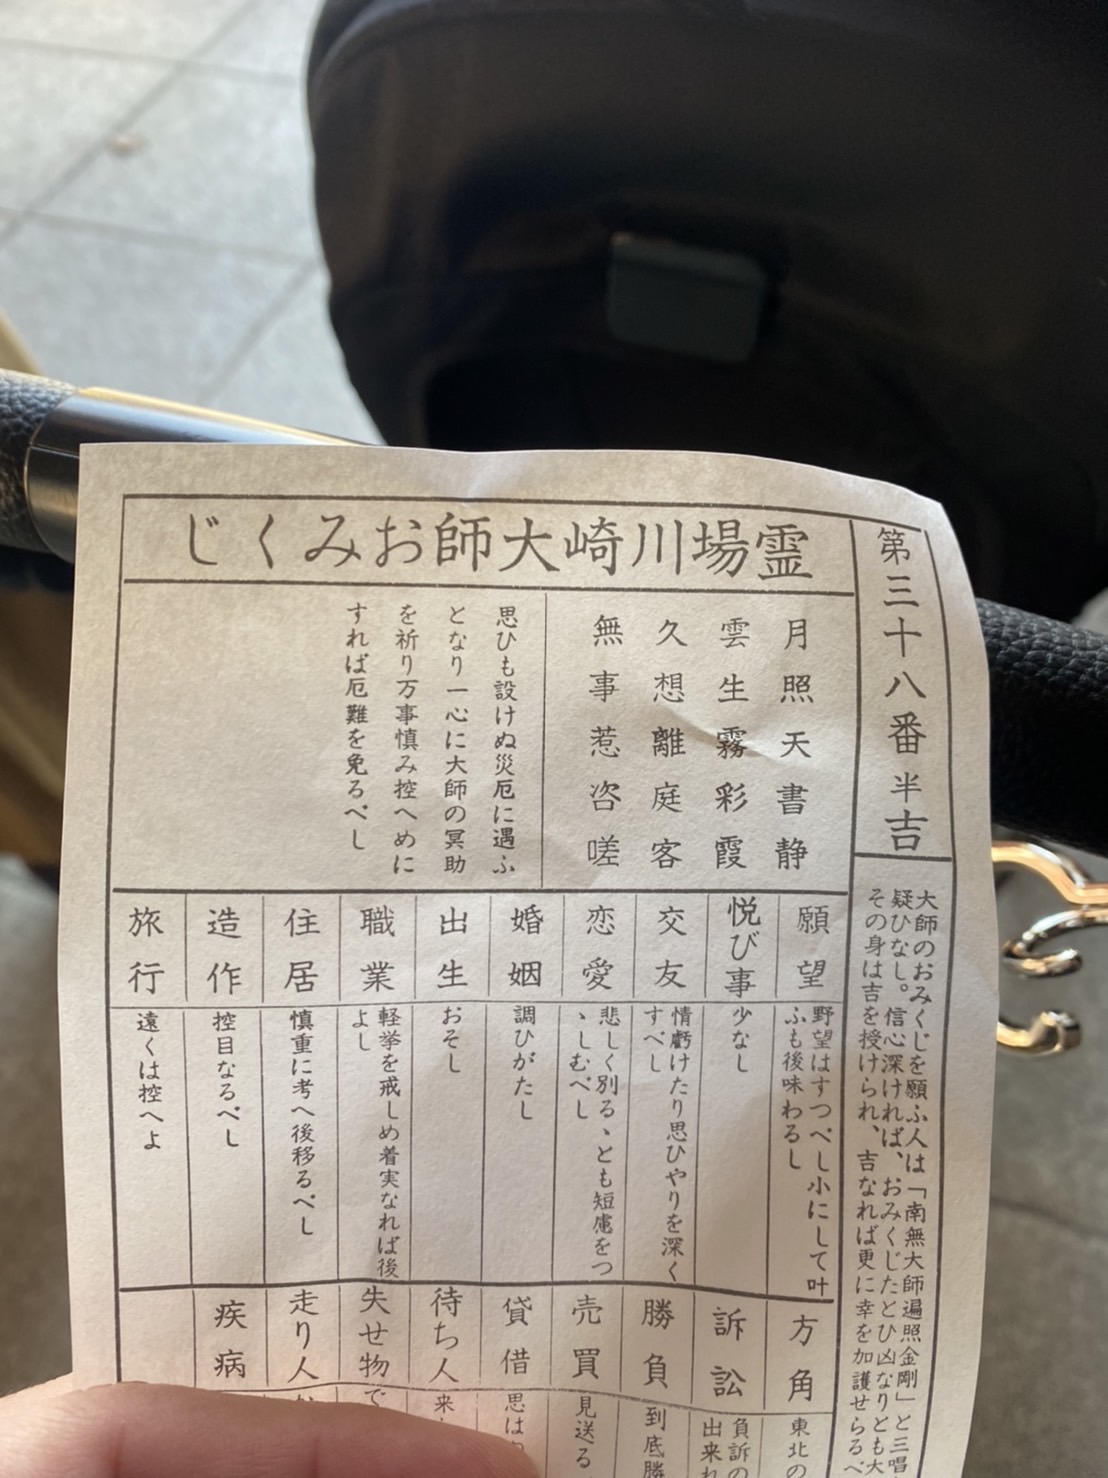 霊場川崎大師おみくじ
第三十八番 半吉
大師のおみくじを願ふ人は「南無大師遍照金剛」と三唱
疑ひなし。信心深ければ、おみくじたとひ凶なりとも大
その身は吉を授けられ、吉なれば更に幸を加護せらるべ
月照天書静
雲生霧彩霞
久想離庭客
無事惹咨嗟
思ひも設けぬ災厄に遇ふ
となり一心に大師の冥助
を祈り万事慎み控へめに
すれば厄難を免るべし
願望
野望はすつべし小にして叶
ふも後味わるし
悦び事
少なし
交友
情虧けたり思ひやりを深く
すべし
恋愛
悲しく別るゝとも短慮をつ
ゝしむべし
婚姻
調ひがたし
出生
おそし
職業
軽挙を戒しめ着実なれば後
よし
住居
慎重に考へ後移るべし
造作
控目なるべし
旅行
遠くは控へよ
方角
東北の
訴訟
負訴の
出来れ
勝負
到底勝
売買
見送る
貸借
思は
待ち人
来
失せ物
で
走り人
疾病